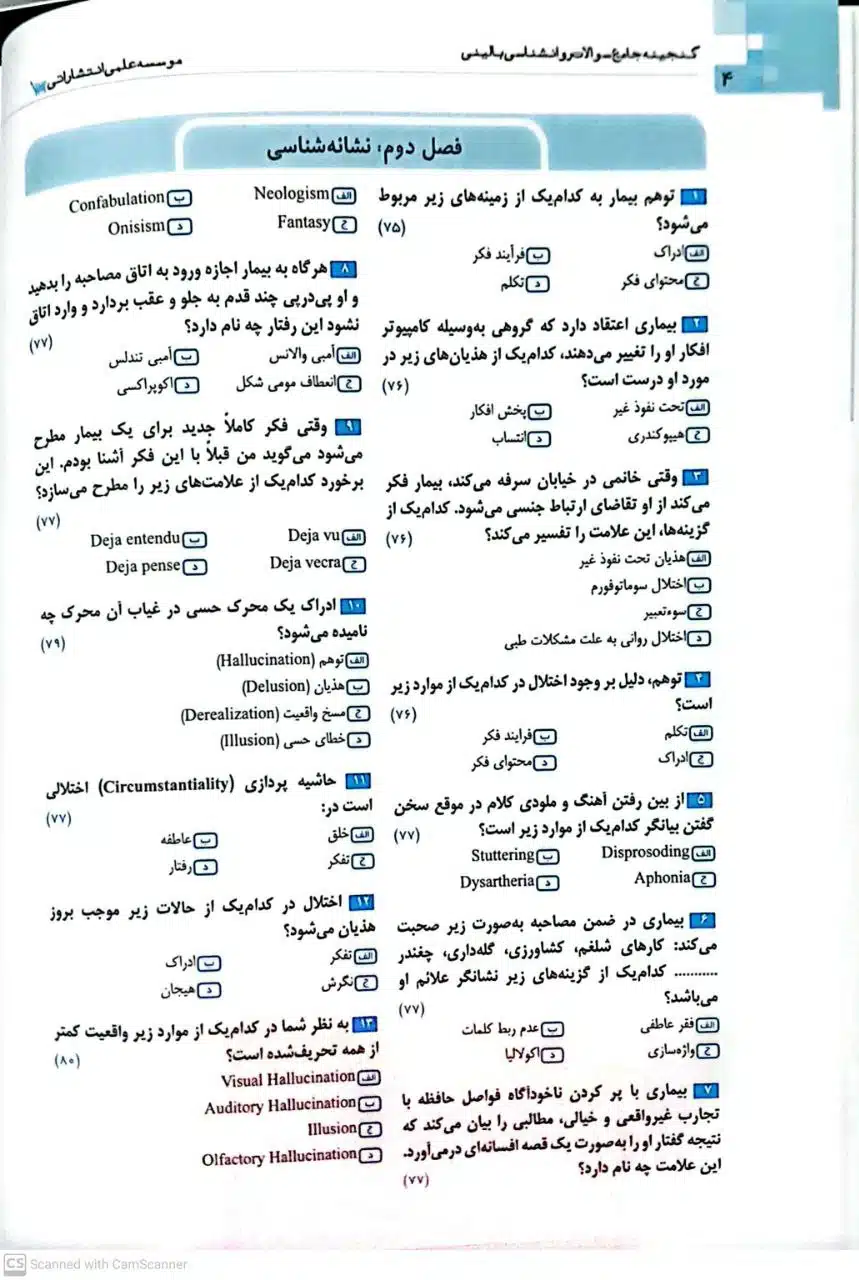 گنجینه جامع سوالات روانشناسی بالینی
موسسه علمی انتشاراتی
۴
فصل دوم، نشانه‌شناسی
۱ توهم بیمار به کدام‌یک از زمینه‌های زیر مربوط
می‌شود؟ (۷۵)
الف ادراک ب فرآیند فکر
ج محتوای فکر د تکلم
۲ بیماری اعتقاد دارد که گروهی به‌وسیله کامپیوتر
افکار او را تغییر می‌دهند، کدام‌یک از هذیان‌های زیر در
مورد او درست است؟ (۷۶)
الف تحت نفوذ غیر ب پخش افکار
ج هیپوکندری د انتساب
۳ وقتی خانمی در خیابان سرفه می‌کند، بیمار فکر
می‌کند از او تقاضای ارتباط جنسی می‌شود. کدام‌یک از
گزینه‌ها، این علامت را تفسیر می‌کند؟ (۷۶)
الف هذیان تحت نفوذ غیر
ب اختلال سوماتوفورم
ج سوءتعبیر
د اختلال روانی به علت مشکلات طبی
۴ توهم، دلیل بر وجود اختلال در کدام‌یک از موارد زیر
است؟ (۷۶)
الف تکلم ب فرایند فکر
ج ادراک د محتوای فکر
۵ از بین رفتن آهنگ و ملودی کلام در موقع سخن
گفتن بیانگر کدام‌یک از موارد زیر است؟ (۷۷)
الف Disprosoding ب Stuttering
ج Aphonia د Dysartheria
۶ بیماری در ضمن مصاحبه به‌صورت زیر صحبت
می‌کند: کارهای شلغم، کشاورزی، گله‌داری، چغندر
........... کدام‌یک از گزینه‌های زیر نشانگر علائم او
می‌باشد؟ (۷۷)
الف فقر عاطفی ب عدم ربط کلمات
ج واژه‌سازی د اکولالیا
۷ بیماری با پر کردن ناخودآگاه فواصل حافظه با
تجارب غیرواقعی و خیالی، مطالبی را بیان می‌کند که
نتیجه گفتار او را به‌صورت یک قصه افسانه‌ای درمی‌آورد.
این علامت چه نام دارد؟ (۷۷)
الف Neologism ب Confabulation
ج Fantasy د Onisism
۸ هرگاه به بیمار اجازه ورود به اتاق مصاحبه را بدهید
و او پی‌درپی چند قدم به جلو و عقب بردارد و وارد اتاق
نشود این رفتار چه نام دارد؟ (۷۷)
الف آمبی والانس ب آمبی تندلس
ج انعطاف مومی شکل د اکوپراکسی
۹ وقتی فکر کاملاً جدید برای یک بیمار مطرح
می‌شود می‌گوید من قبلاً با این فکر آشنا بودم. این
برخورد کدام‌یک از علامت‌های زیر را مطرح می‌سازد؟
(۷۷)
الف Deja vu ب Deja entendu
ج Deja vecra د Deja pense
۱۰ ادراک یک محرک حسی در غیاب آن محرک چه
نامیده می‌شود؟ (۷۹)
الف توهم (Hallucination)
ب هذیان (Delusion)
ج مسخ واقعیت (Derealization)
د خطای حسی (Illusion)
۱۱ حاشیه پردازی (Circumstantiality) اختلالی
است در: (۷۷)
الف خلق ب عاطفه
ج تفکر د رفتار
۱۲ اختلال در کدام‌یک از حالات زیر موجب بروز
هذیان می‌شود؟
الف تفکر ب ادراک
ج نگرش د هیجان
۱۳ به نظر شما در کدام‌یک از موارد زیر واقعیت کمتر
از همه تحریف‌شده است؟ (۸۰)
الف Visual Hallucination
ب Auditory Hallucination
ج Illusion
د Olfactory Hallucination
CS Scanned with CamScanner